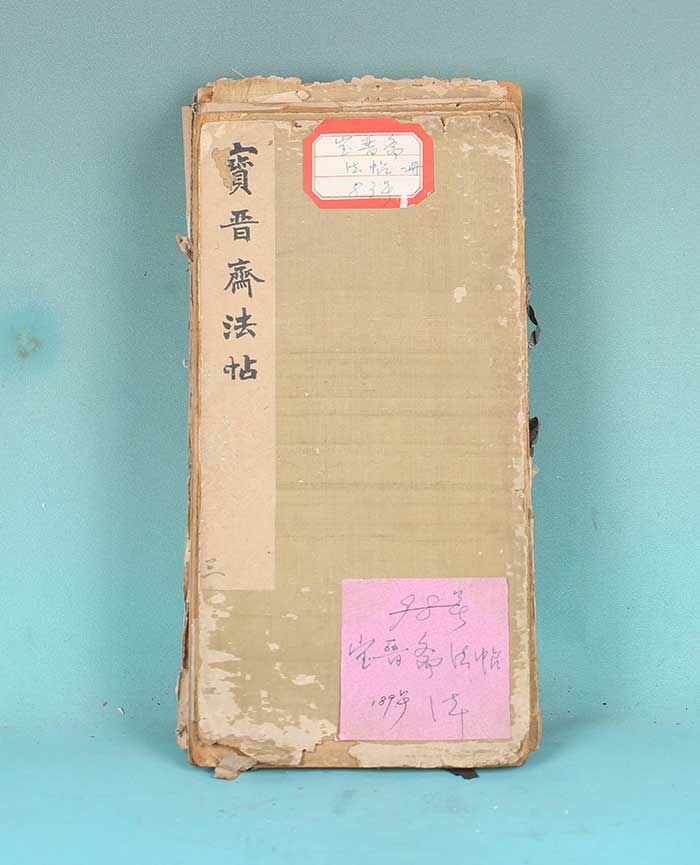 寶晋齋法帖
三
宝晋斋
法帖 二册
83号
98号
宝晋斋法帖
189号